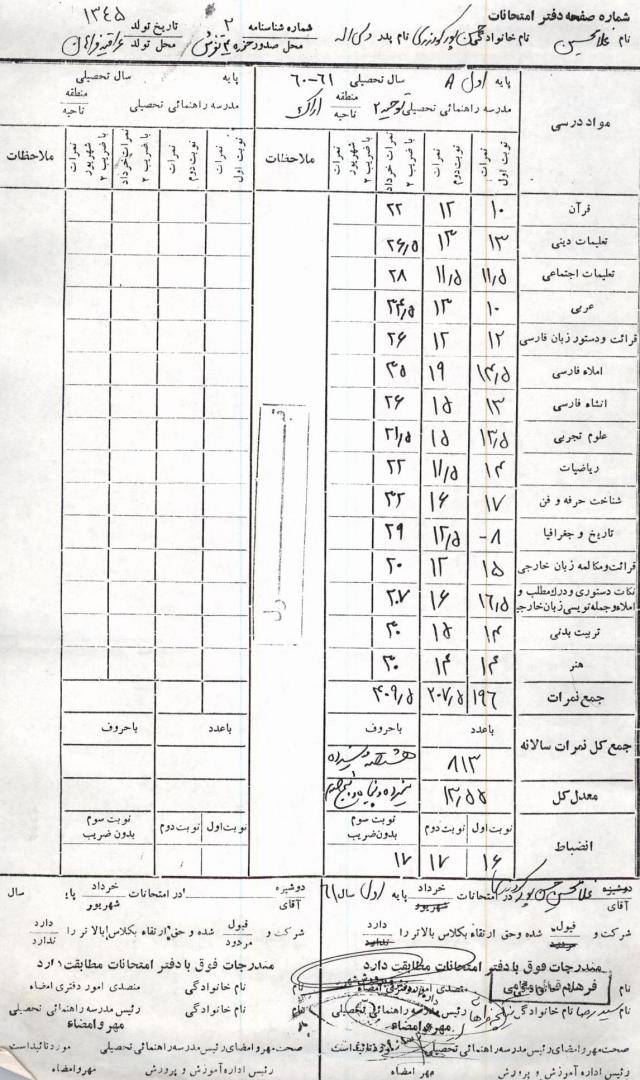 شماره صفحه دفتر امتحانات
شماره شناسنامه ۲ تاریخ تولد ۱۳۴۵
نام غلامحسین نام خانوادگی نام پدر محل صدور حوزه ۲ محل تولد
پایه اول A سال تحصیلی ۶۱-۶۰
مدرسه راهنمائی تحصیلی توحید ۲ منطقه ناحیه اراک
پایه سال تحصیلی
مدرسه راهنمائی تحصیلی منطقه ناحیه
مواد درسی نمرات نوبت اول نمرات نوبت دوم نمرات خرداد با ضریب ۲ نمرات شهریور با ضریب ۲ ملاحظات نمرات نوبت اول نمرات نوبت دوم نمرات خرداد با ضریب ۲ نمرات شهریور با ضریب ۲ ملاحظات
قرآن ۱۰ ۱۲ ۲۲
تعلیمات دینی ۱۳ ۱۳ ۲۶/۵
تعلیمات اجتماعی ۱۱/۵ ۱۱/۵ ۲۸
عربی ۱۰ ۱۳
قرائت و دستور زبان فارسی ۱۲ ۱۲ ۲۶
املاء فارسی ۱۴/۵ ۱۹ ۳۵
انشاء فارسی ۱۳ ۱۵ ۲۶
علوم تجربی ۱۲/۵ ۱۵ ۲۱/۵
ریاضیات ۱۴ ۱۱/۵ ۲۲
شناخت حرفه و فن ۱۷ ۱۶ ۳۲
تاریخ و جغرافیا ۸- ۱۲/۵ ۲۹
قرائت و مکالمه زبان خارجی ۱۵ ۱۲ ۲۰
نکات دستوری و درک مطلب و املاء و جمله نویسی زبان خارجی ۱۶/۵ ۱۶ ۲۰/۷
تربیت بدنی ۱۴ ۱۵ ۳۰
هنر ۱۴ ۱۴ ۳۰
جمع نمرات ۱۹۶ ۲۰۷/۵ ۴۰۹/۵
جمع کل نمرات سالانه باعدد باحروف باعدد باحروف
۸۱۳ هشتصد و سیزده
معدل کل ۱۳/۵۵
انضباط نوبت اول نوبت دوم نوبت سوم بدون ضریب نوبت اول نوبت دوم نوبت سوم بدون ضریب
۱۶ ۱۷ ۱۷
دوشیزه آقای غلامحسین در امتحانات خرداد شهریور پایه اول سال ۶۱
شرکت و قبول مردود شده و حق ارتقاء بکلاس بالاتر را دارد ندارد
مندرجات فوق با دفتر امتحانات مطابقت دارد
نام متصدی امور دفتری امضاء
نام نام خانوادگی رئیس مدرسه راهنمائی تحصیلی
مهر و امضاء
صحت مهر و امضای رئیس مدرسه راهنمائی تحصیلی مورد تائید است
رئیس اداره آموزش و پرورش مهر امضاء
دوشیزه آقای در امتحانات خرداد شهریور پایه سال
شرکت و قبول مردود شده و حق ارتقاء بکلاس بالاتر را دارد ندارد
مندرجات فوق با دفتر امتحانات مطابقت دارد
نام نام خانوادگی متصدی امور دفتری امضاء
نام نام خانوادگی رئیس مدرسه راهنمائی تحصیلی
مهر و امضاء
صحت مهر و امضای رئیس مدرسه راهنمائی تحصیلی مورد تائید است
رئیس اداره آموزش و پرورش مهر و امضاء